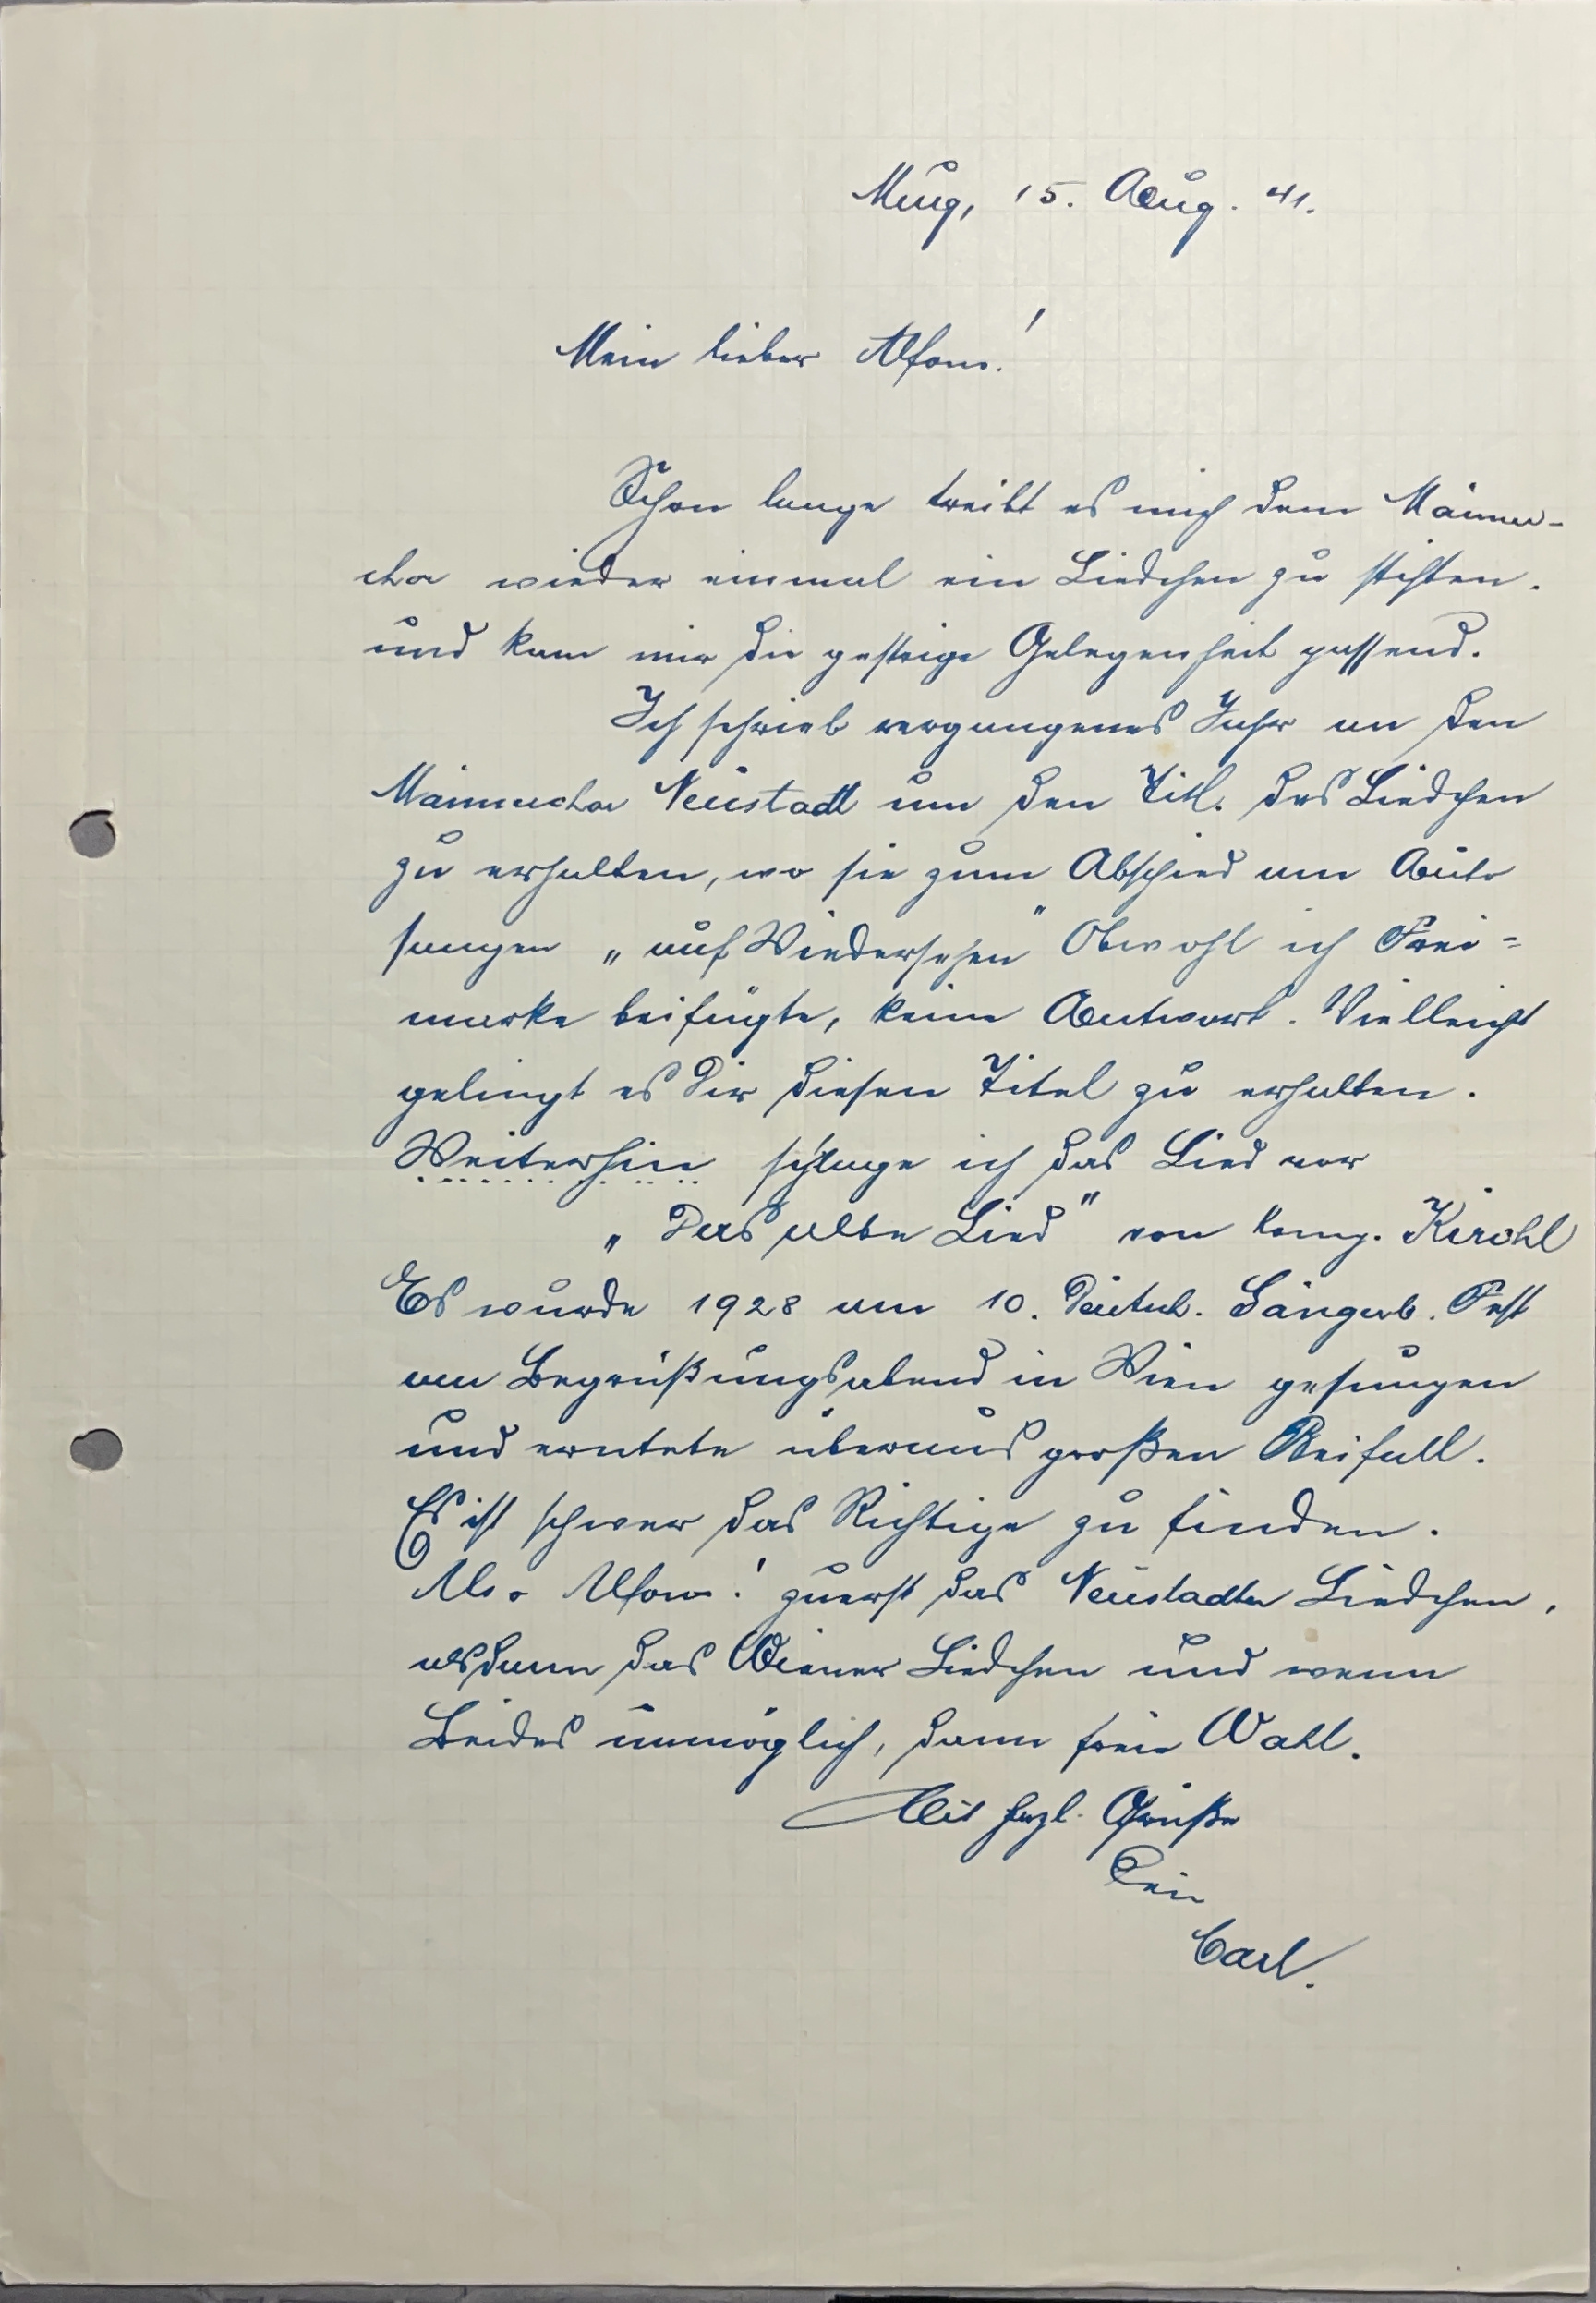 Murg, 15. Aug. 41.
Mein lieber Alfons!
Schon lange treibt es mich dem Männer-
chor wieder einmal ein Liedchen zu stiften.
und kam mir die gestrige Gelegenheit passend.
Ich schrieb vergangenes Jahr an den
Männerchor Neustadt um den Titl. des Liedchen
zu erhalten, wo sie zum Abschied am Auto
sangen „auf Wiedersehen" Obwohl ich Frei=
marke beifügte, keine Antwort. Vielleicht
gelingt es Dir diesen Titel zu erhalten.
Weiterhin schlage ich das Lied vor
„Das alte Lied" von Komp. Kirchl
Es wurde 1928 am 10. Deutsch. Sängerb. Fest
am Begrüßungsabend in Wien gesungen
und erntete überaus großen Beifall.
Es ist schwer das Richtige zu finden.
Also Alfons! zuerst das Neustadter Liedchen,
alsdann das Wiener Liedchen und wenn
Beides unmöglich, dann freie Wahl.
Mit herzl. Grüße
Dein
Carl.